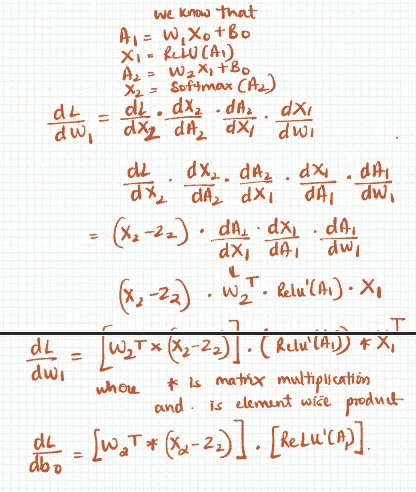 we know that
A₁ = W₁X₀ + B₀
X₁ = ReLU(A₁)
A₂ = W₂X₁ + B₀
X₂ = Softmax(A₂)
dL/dW₁ = dL/dX₂ · dX₂/dA₂ · dA₂/dX₁ · dX₁/dW₁
dL/dX₂ · dX₂/dA₂ · dA₂/dX₁ · dX₁/dA₁ · dA₁/dW₁
= (X₂ - Z₂) · dA₂/dX₁ · dX₁/dA₁ · dA₁/dW₁
(X₂ - Z₂) · W₂ᵀ · Relu'(A₁) · X₁
dL/dW₁ = [W₂T * (X₂ - Z₂)] · (Relu'(A₁)) * X₁ᵀ
where * is matrix multiplication
and · is element wise product
dL/db₀ = [W₂T * (X₂ - Z₂)] · [ReLU'(A₁)].